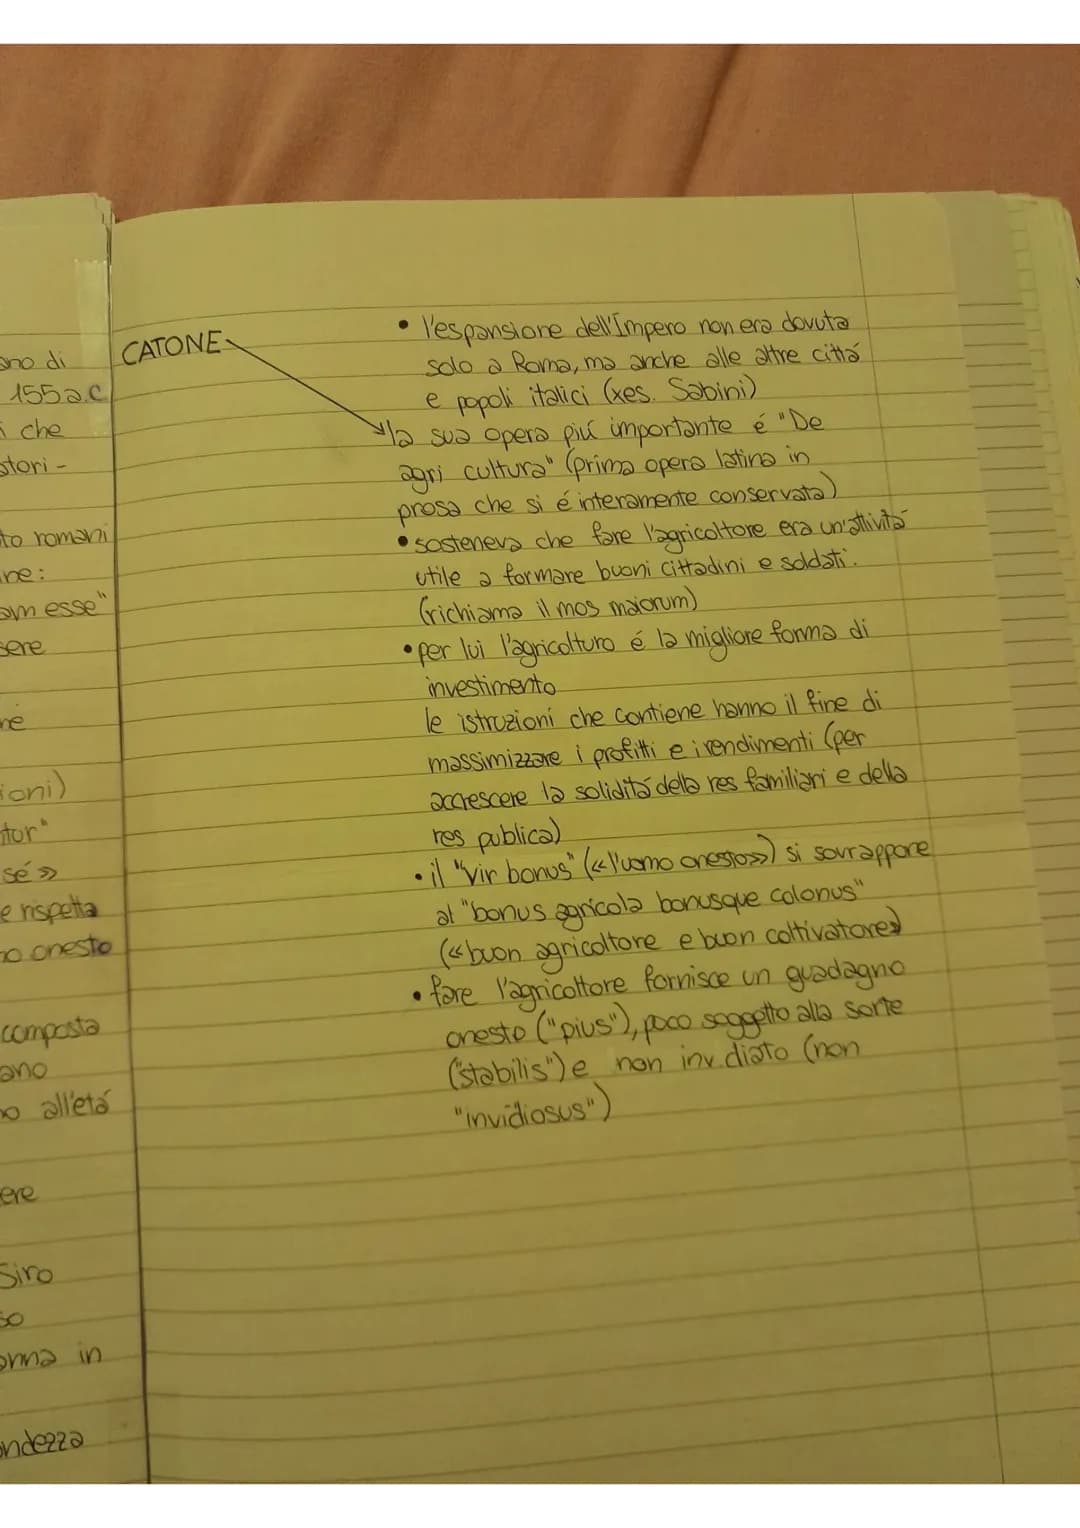 ano di
155a.C
i che
stori-
to romani
ne:
am esse"
sere
né
ioni)
tor"
sé»
e rispetta
no onesto
composta
ano
no all'etá
ere
Siro
so
onna in
ondezza
CATONE
• l'espansione dell'Impero non era dovuta
solo a Roma, ma anche alle altre cittá
e popoli italici (xes. Sabini)
la sua opera piú importante é "De
agri cultura" (prima opera latina in
prosa che si é interamente conservata)
• sosteneva che fare l'agricoltore era un'attivitá
utile a formare buoni cittadini e soldati.
(richiama il mos maiorum)
• per lui l'agricoltura é la migliore forma di
investimento
le istruzioni che contiene hanno il fine di
massimizzare i profitti e i rendimenti (per
accrescere la soliditá della res familiari e della
res publica)
• il "vir bonus" («l'uomo onesto») si sovrappone
al "bonus agricola bonusque colonus"
(«buon agricoltore e buon coltivatore»)
• fare l'agricoltore fornisce un guadagno
onesto ("pius"), poco soggetto alla sorte
("stabilis") e non inv.diato (non
"invidiosus")